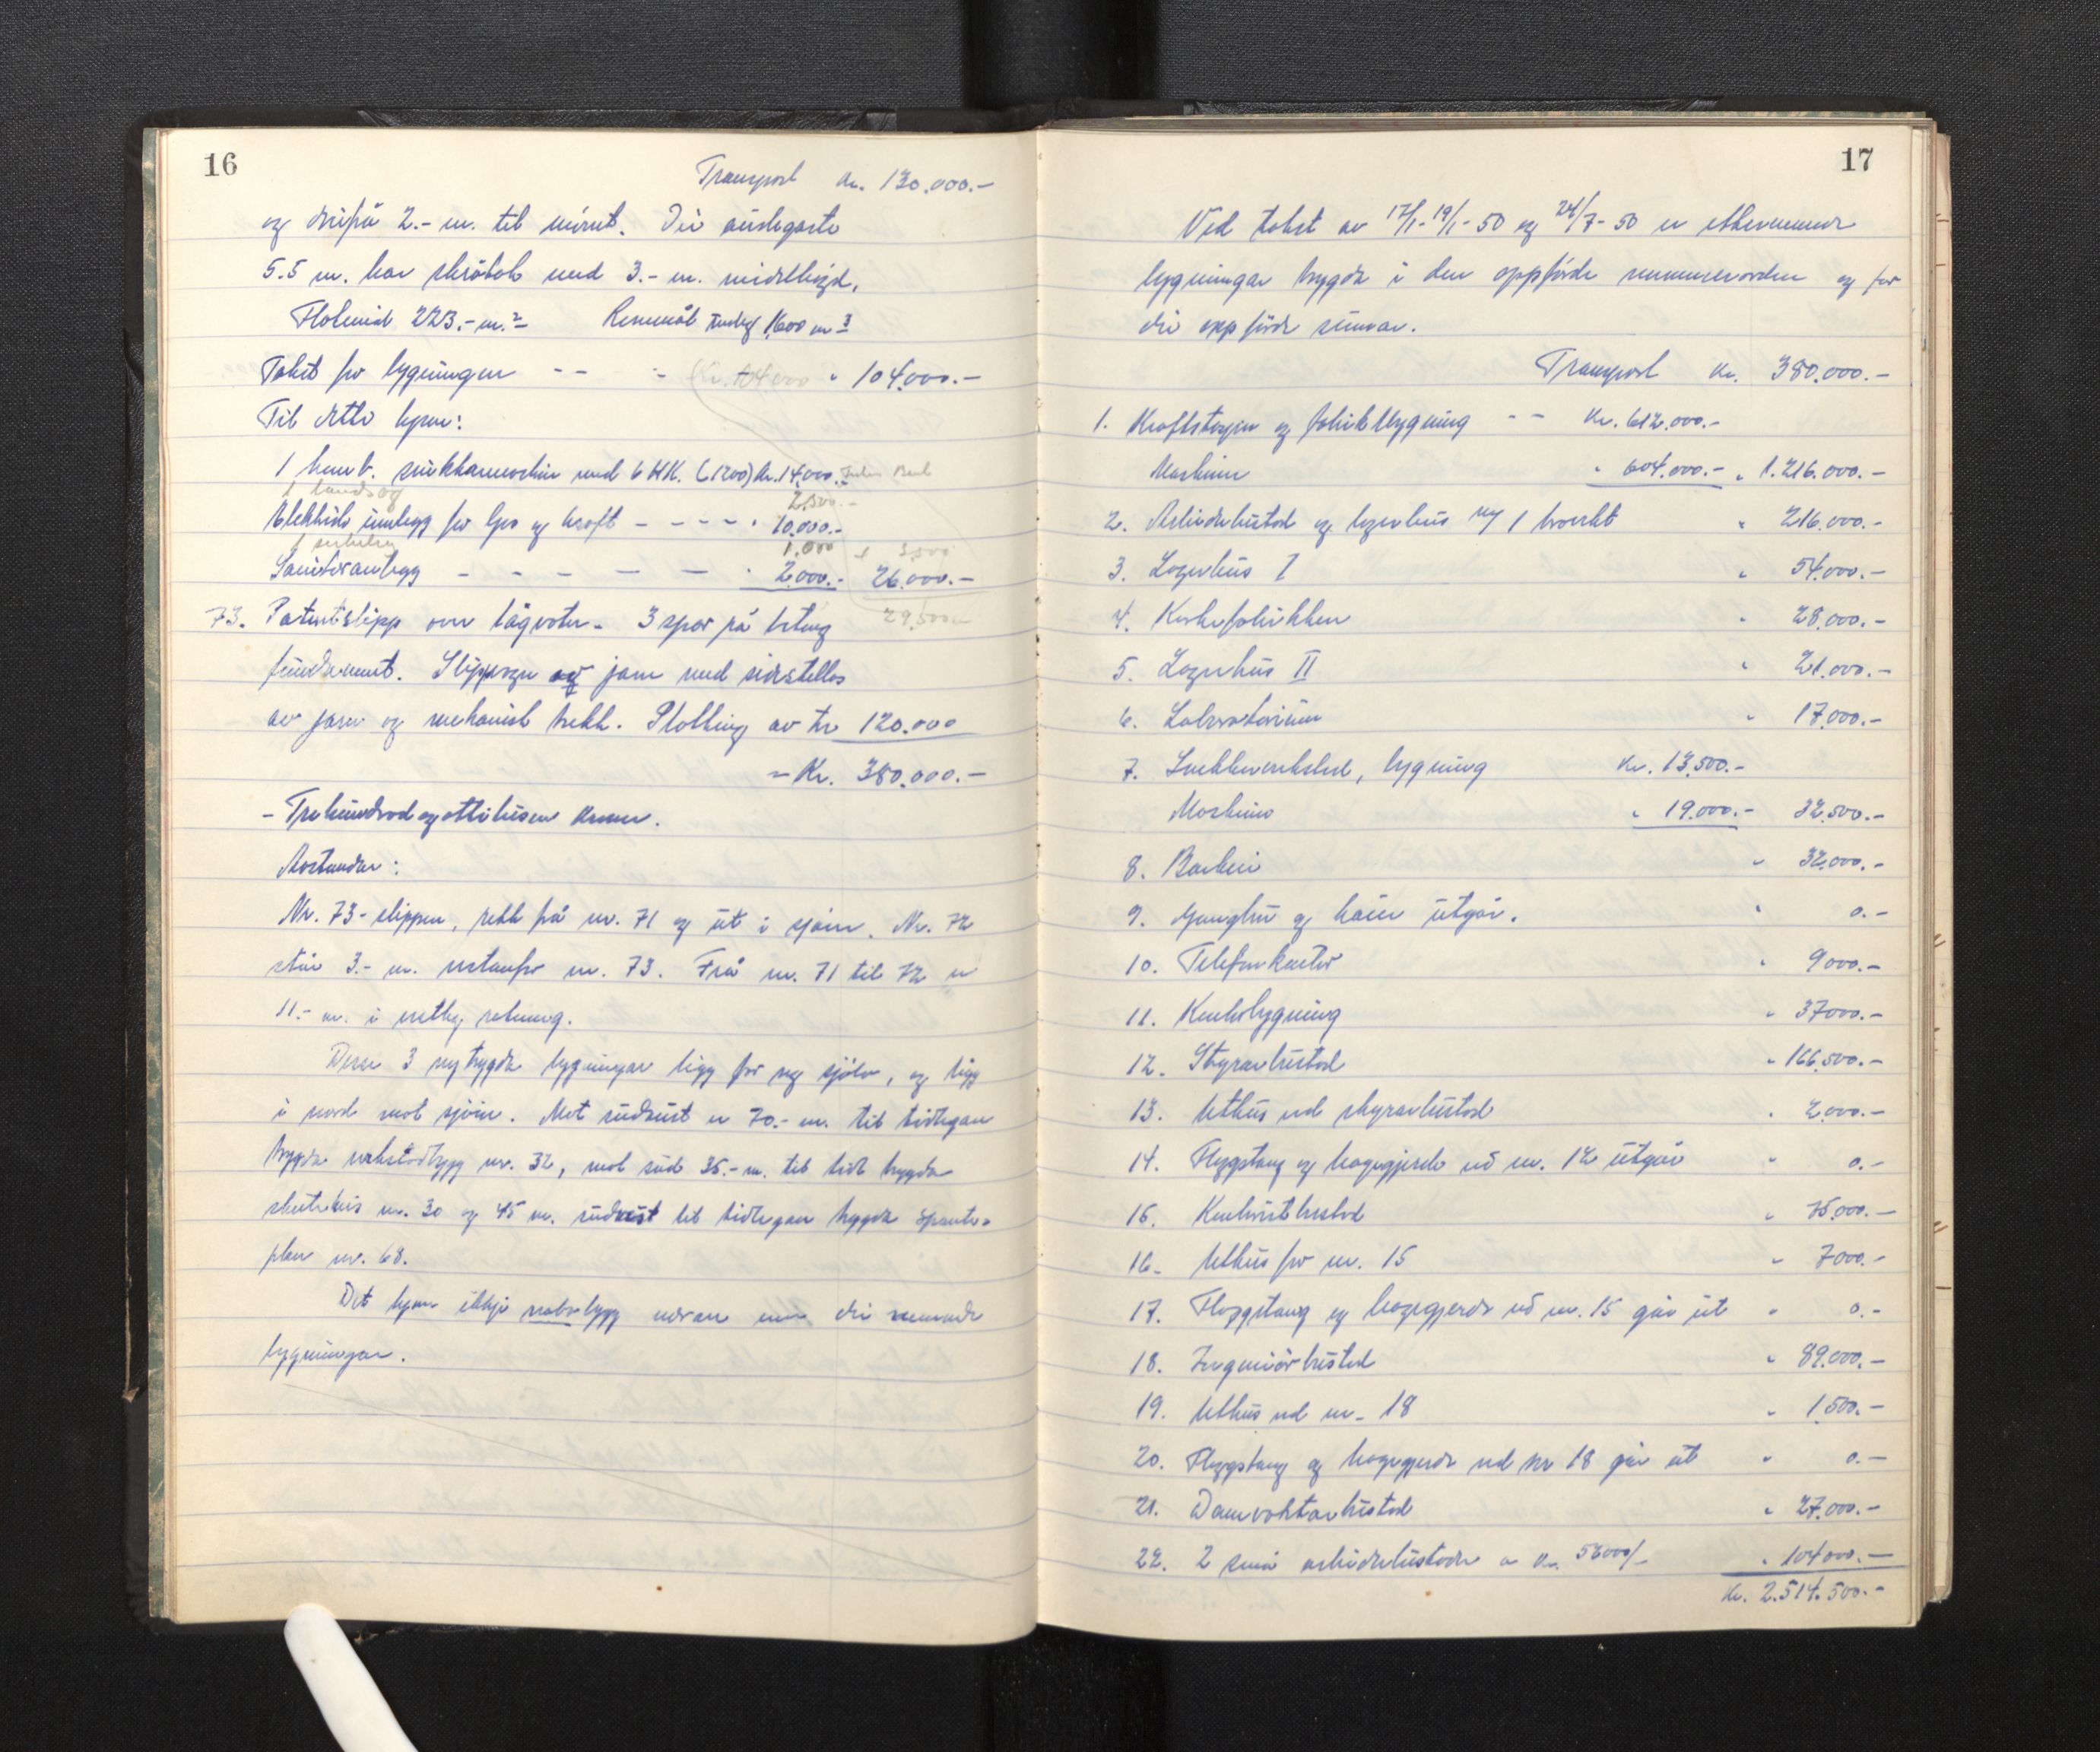 16
Transport kr. 130.000.-
og derifrå 2.- m. til mønet. Dei austlegaste
5.5 m. har skråtak med 3.- m. midelhøgd.
Flateinnh. 223.- m.² Rommål 1600 m³
Takst for bygningen - - - " 104.000.-
Til dette kjem:
1 komb. snikkarmaskin med 6 HK. (1200) kr. 14.000.-
1 bandsag 2.500.-
Elektrisk innlegg for ljos og kraft - - - - " 10.000.-
1.000 3.500
Sanitæranlegg - - - - - - " 2.000.- 26.000.-
29.500
73. Patentslipp over lågvatn. 3 spor på betong
fundament. Slippvogn av jarn med sidestellas
av jarn og mekanisk trekk. Plattling av tre 120.000
= Kr. 380.000.-
- Trehundrad og åttitusen kroner.
Avstandar:
Nr. 73 - slippen, rekk frå nr. 71 og ut i sjøen. Nr. 72
står 3.- m. vestanfor nr. 73. Frå nr. 71 til 72 er
11.- m. i vestleg retning.
Desse 3 nybygde bygningar ligg for seg sjølv, og ligg
i nord mot sjøen. Mot sudaust er 70.- m. til tidlegare
bygde verkstadbygg nr. 32, mot sud 35.- m. til tidl. bygde
nr. 30 og 45 m. sudvest til tidlegare bygde spante-
plan nr. 68.
Det kjem ikkje nabobygg nærare enn dei nemnde
bygningar.
17
Ved takst av 17/1-19/1-50 og 24/7-50 er etternemnde
bygningar bygde i den oppførde nummerorden og for
dei oppførde summar.
Transport kr. 380.000.-
1. Kraftstasjon og fabrikkbygning - - Kr. 612.000.-
Maskiner " 604.000.- " 1.216.000.-
2. Arbeidarbustad og lagerhus " 216.000.-
3. Lagerhus I " 54.000.-
4. Korkefabrikken " 28.000.-
5. Lagerhus II " 21.000.-
6. Laboratorium " 17.000.-
7. Snekkerverkstad, bygning Kr. 13.500.-
Maskiner " 19.000.- 32.500.-
8. Barkeri " 32.000.-
9. Gangbru og kaien utgår. " 0.-
10. Telefonkontor " 9000.-
11. Kontorbygning " 37000.-
12. Styrarbustad " 166.500.-
13. Uthus ved styrarbustad " 2.000.-
14. Flaggstang og hagegjerde ved nr. 12 utgår " 0.-
15. Kontoristbustad " 75.000.-
16. Uthus for nr. 15 " 7000.-
17. Flaggstang og hagegjerde ved nr. 15 går ut " 0.-
18. Ingeniørbustad " 89.000.-
19. Uthus ved nr. 18 " 1.500.-
20. Flaggstang og hagegjerde ved nr 18 går ut " 0.-
21. Damvaktarbustad " 27.000.-
22. 2 små arbeidarbustader a kr. 52000/- " 104000.-
Kr. 2.514.500.-